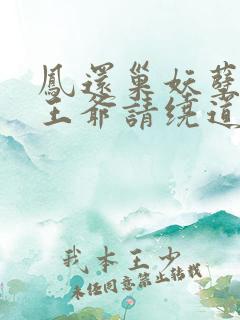 鳳還巢妖孽
王爺請繞道
我本王少
未经同意禁止转载